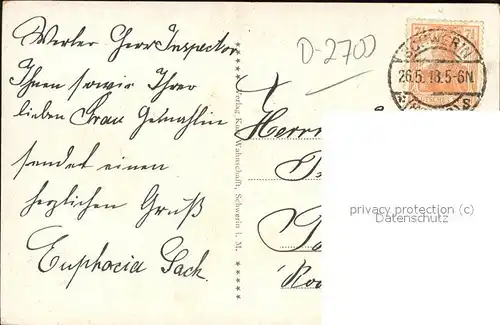 Werter Herr Inspector
Ihnen sowie Ihrer
lieben Frau Gemahlin
sendet einen
herzlichen Gruß
Euphrosia Sack.
D-2700
SCHWERIN
26.5.18.5-6N
S
Verlag Karl Wahnschafft, Schwerin i. M.
Herrn
privacy protection (c)
Datenschutz